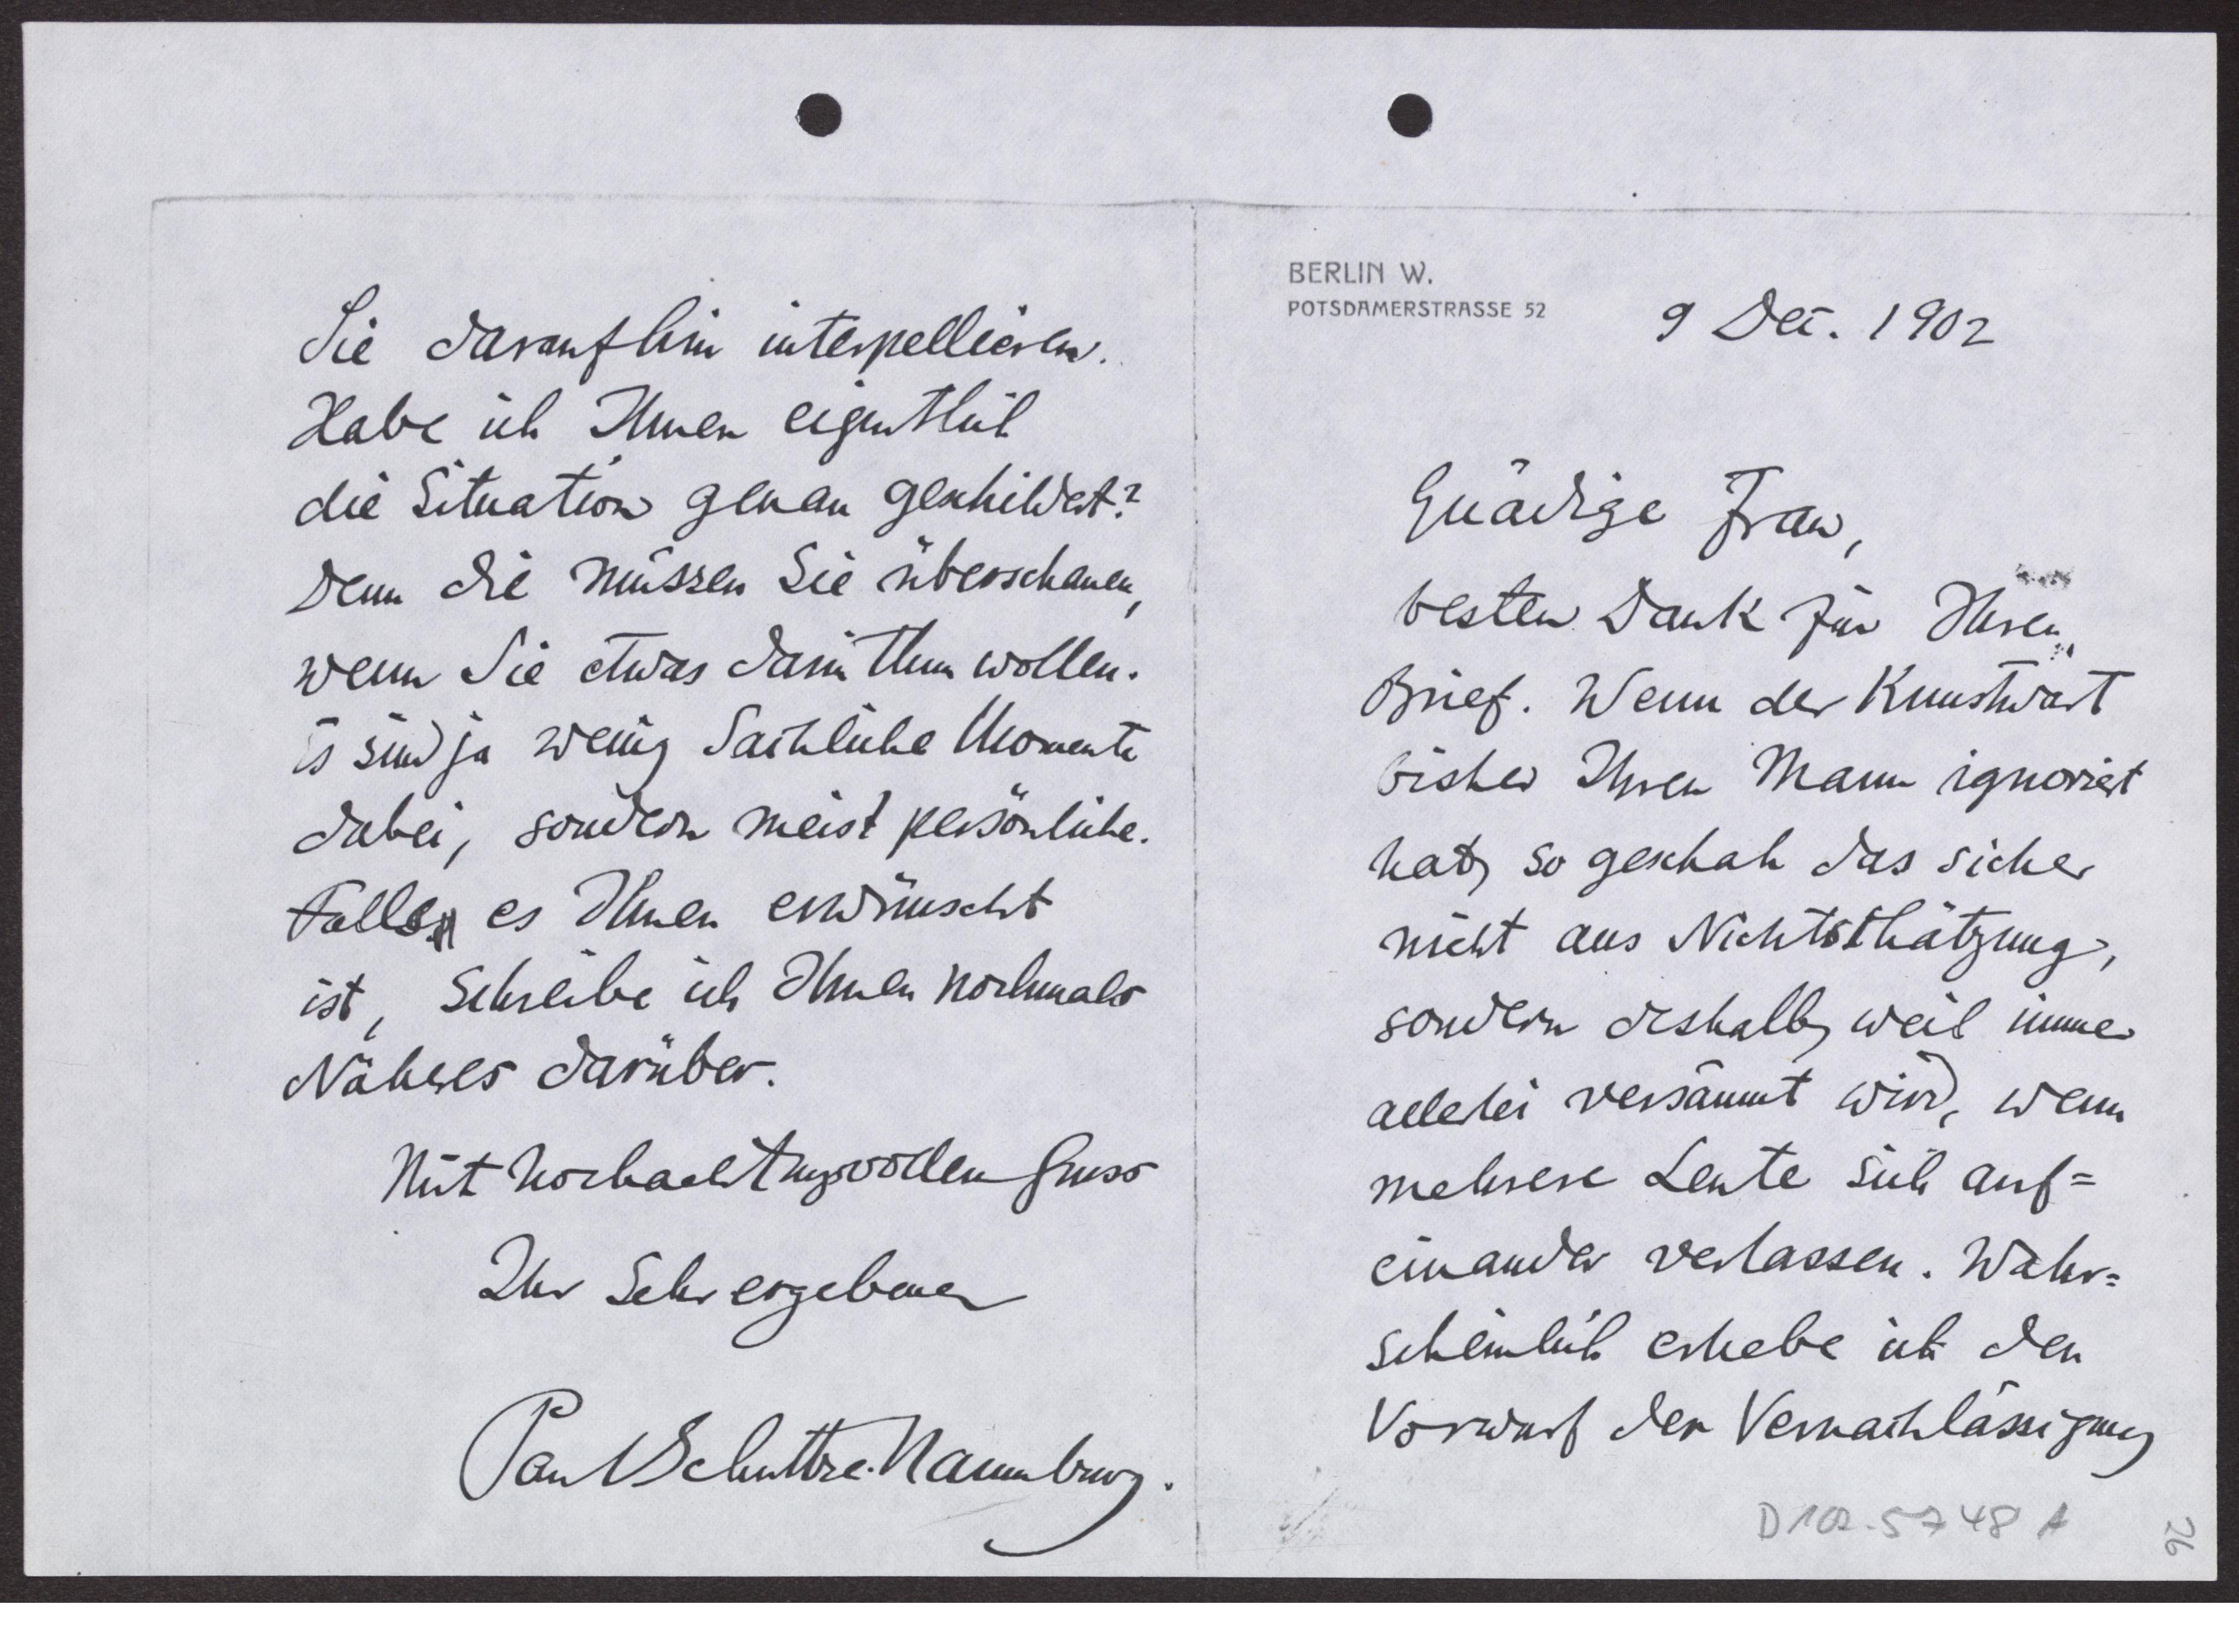 BERLIN W.
POTSDAMERSTRASSE 52
9 Dec. 1902
Gnädige Frau,
besten Dank für Ihren
Brief. Wenn der Kunstwart
bisher Ihren Mann ignoriert
hat, so geschah das sicher
nicht aus Nichtsthätzung,
sondern deshalb, weil immer
allerlei versäumt wird, wenn
mehrere Leute sich auf=
einander verlassen. Wahr=
scheinlich erhebe ich den
Vorwurf der Vernachlässigung
D 102.5748 A
26
Sie daraufhin interpellieren.
Habe ich Ihnen eigentlich
die Situation genau geschildert?
Denn die müssen Sie überschauen,
wenn Sie etwas darin thun wollen.
Es sind ja wenig sachliche Momente
dabei, sondern meist persönliche.
Falls es Ihnen erwünscht
ist, schreibe ich Ihnen nochmals
Näheres darüber.
Mit hochachtungsvollen Gruss
Ihr sehr ergebener
Paul Schultze-Naumburg.